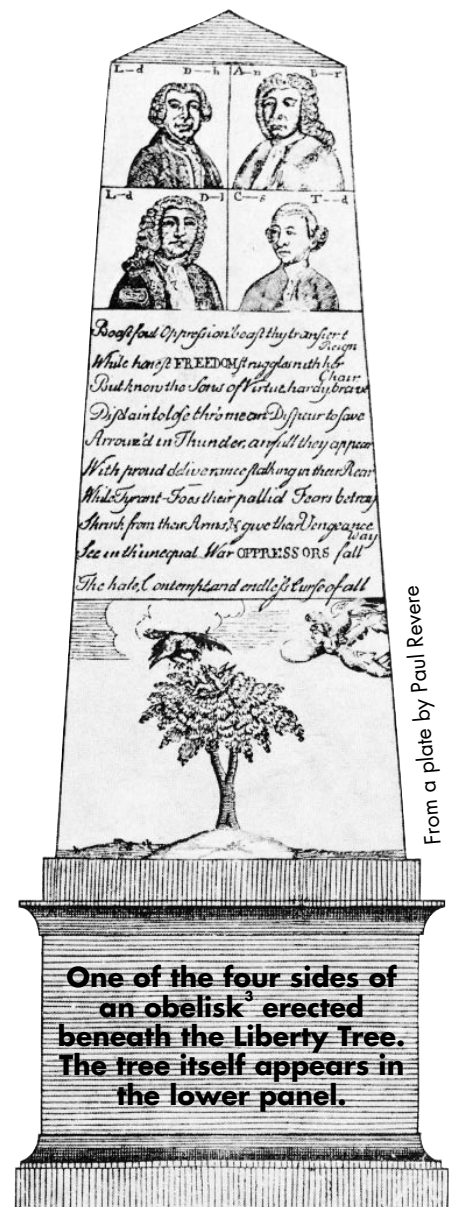 L--d D---h A--n B--r
L--d D--l C--s T--d
Boast foul Oppression boast thy transient
Reign
While honest FREEDOM struggles with her
Chain
But know the Sons of Virtue hardy brave
Disdain to lose thro' mean Dispair to save
Arrouz'd in Thunder, awfull they appear
With proud deliverance stalking in their Rear
While Tyrant-Foes their pallid Fears betray
Shrink from their Arms, & give their Vengeance
way
See in th'unequal War OPPRESSORS fall
The hate, Contempt, and endless Curse of all
From a plate by Paul Revere
One of the four sides of
an obelisk³ erected
beneath the Liberty Tree.
The tree itself appears in
the lower panel.